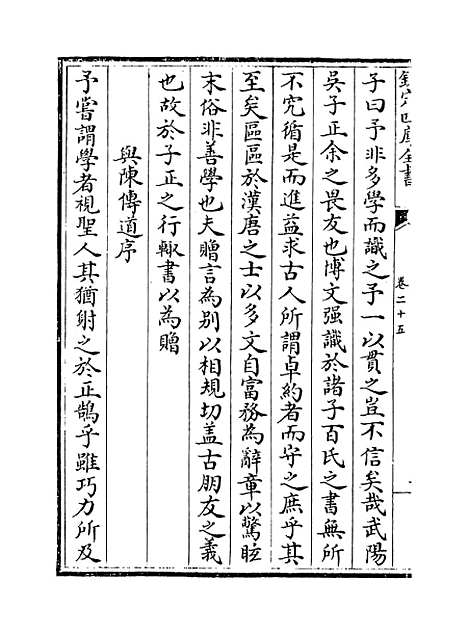 欽定四庫全書
卷二十五
子曰予非多學而識之予一以貫之豈不信矣哉武陽
吳子正余之畏友也博文强識於諸子百氏之書無所
不究循是而進益求古人所謂卓約者而守之庶乎其
至矣區區於漢唐之士以多文自富務為辭章以驚眩
末俗非善學也夫贈言為别以相規切盖古朋友之義
也故於子正之行輙書以為贈
與陳傳道序
予嘗謂學者視聖人其猶射之於正鵠乎雖巧力所及